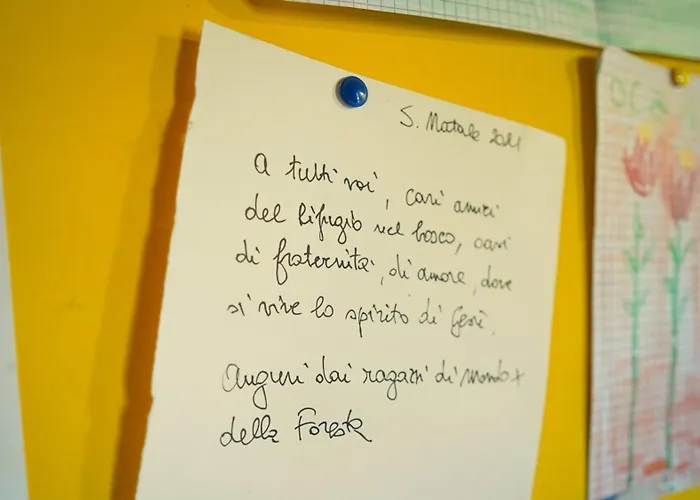 S. Natale 2021
A tutti voi, cari amici
del Rifugio nel bosco, oasi
di fraternità, di amore, dove
si vive lo spirito di Gesù.
Auguri dai ragazzi di Mondo +
della Foresta